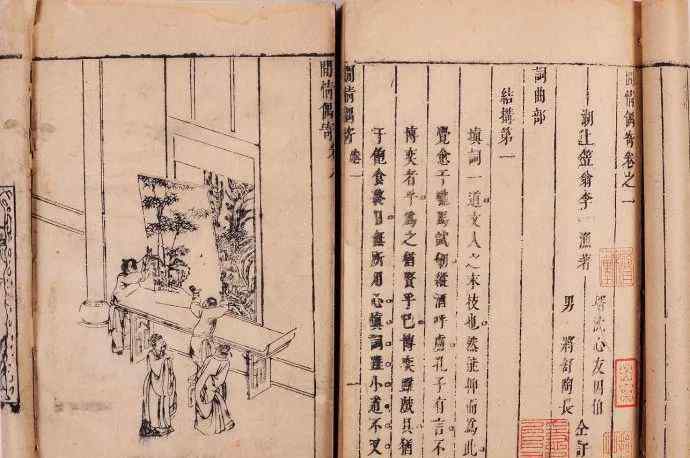 閒情偶寄卷之一
湖上笠翁李漁著
壻沈心友因伯
男將舒陶長
仝訂
詞曲部
結搆第一
填詞一道文人之末技也然能抑而為此
覺愈于馳馬試劍縱酒呼盧孔子有言不
博奕者乎為之猶賢乎已博奕雖戲具猶
于飽食終日無所用心填詞雖小道不又
閒情偶寄
卷一
一
閒情偶寄